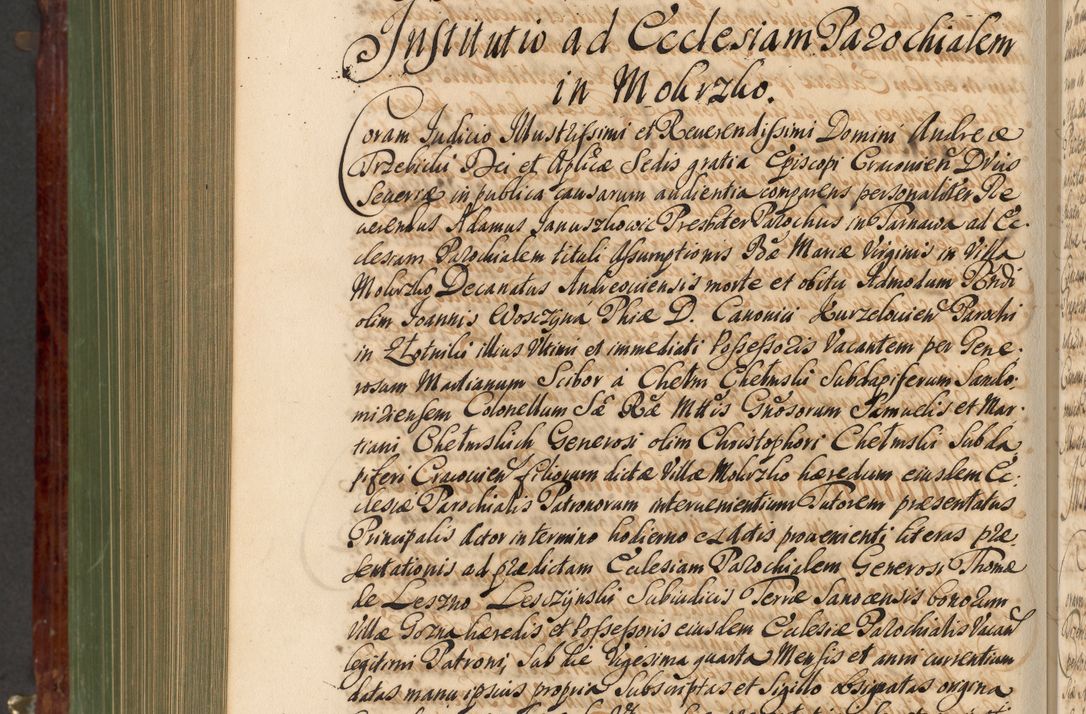 Institutio ad Ecclesiam Parochialem
in Mokrzko.
Coram Judicio Illustrissimi et Reuerendissimi Domini Andreæ
Trzebicki Dei et Aplicæ Sedis gratia Episcopi Cracouien Ducis
Seueriæ in publica causarum audientia comparens personaliter Re
uerendus Adamus Januszkowic Presbiter Parochus in Tarnawa ad Ec:
clesiam Parochialem tituli Assumptionis Bæ Mariæ Virginis in Villa
Mokrzko Decanatus Andreouiensis morte et obitu Admodum Rndi
olim Joannis Wosczyna Phiæ D. Canonici Kurzelouien Parochi
in Złotniki illius Vltimi et immediati Possessoris Vacantem per Gene:
rosum Martianum Scibor à Chełm Chełmski Subdapiferum Sando:
miriensem Colonellum Sæ Ræ Mttis Gnosorum Samuelis et Mar:
tiani Chełmskich Generosi olim Christophori Chełmski Subda
piferi Cracouien filiorum dictæ Villæ Mokrzko hæredum eiusdem Ec:
clesiæ Parochialis Patronorum interuenientium Tutorem præsentatus
Principalis Actor in termino hodierno ex Actis prouenienti literas præ:
sentationis ad prædictam Ecclesiam Parochialem Generosi Thomæ
de Leszno Lesczynski Subiudicis Terræ Sanocensis bonorum
Villæ Gozna hæredis et Possessoris eiusdem Ecclesiæ Parochialis Vacan
legitimi Patroni, sub die Vigesima quarta Mensis et anni currentium
datas manu ipsius propria Subscriptas et Sigillo obsignatas origina